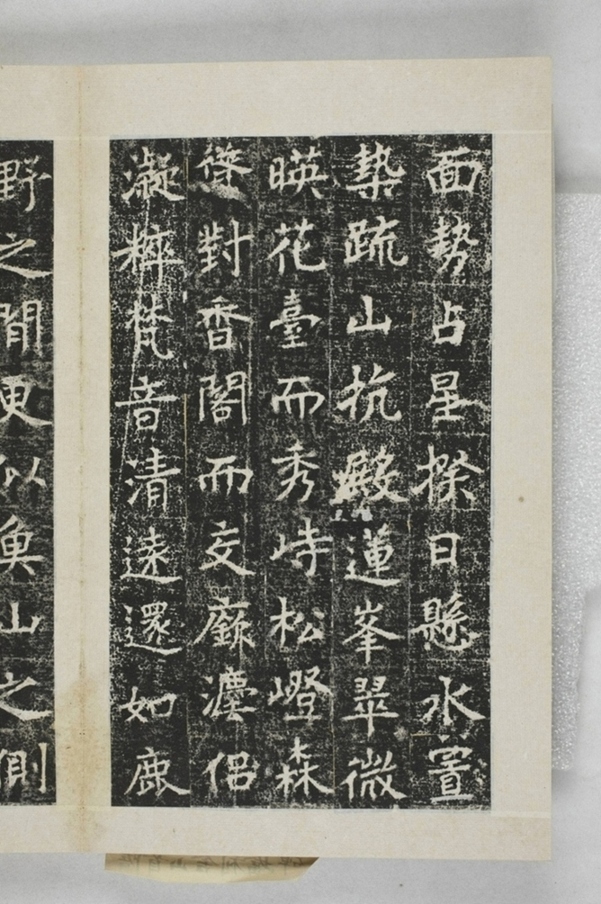 面勢占星揆日懸水置
槷疏山抗殿蓮峯翠微
暎花臺而秀峙松嶝森
條對香閣而交廕灋侶
凝粹梵音清遠還如鹿
野之間更似魚山之側